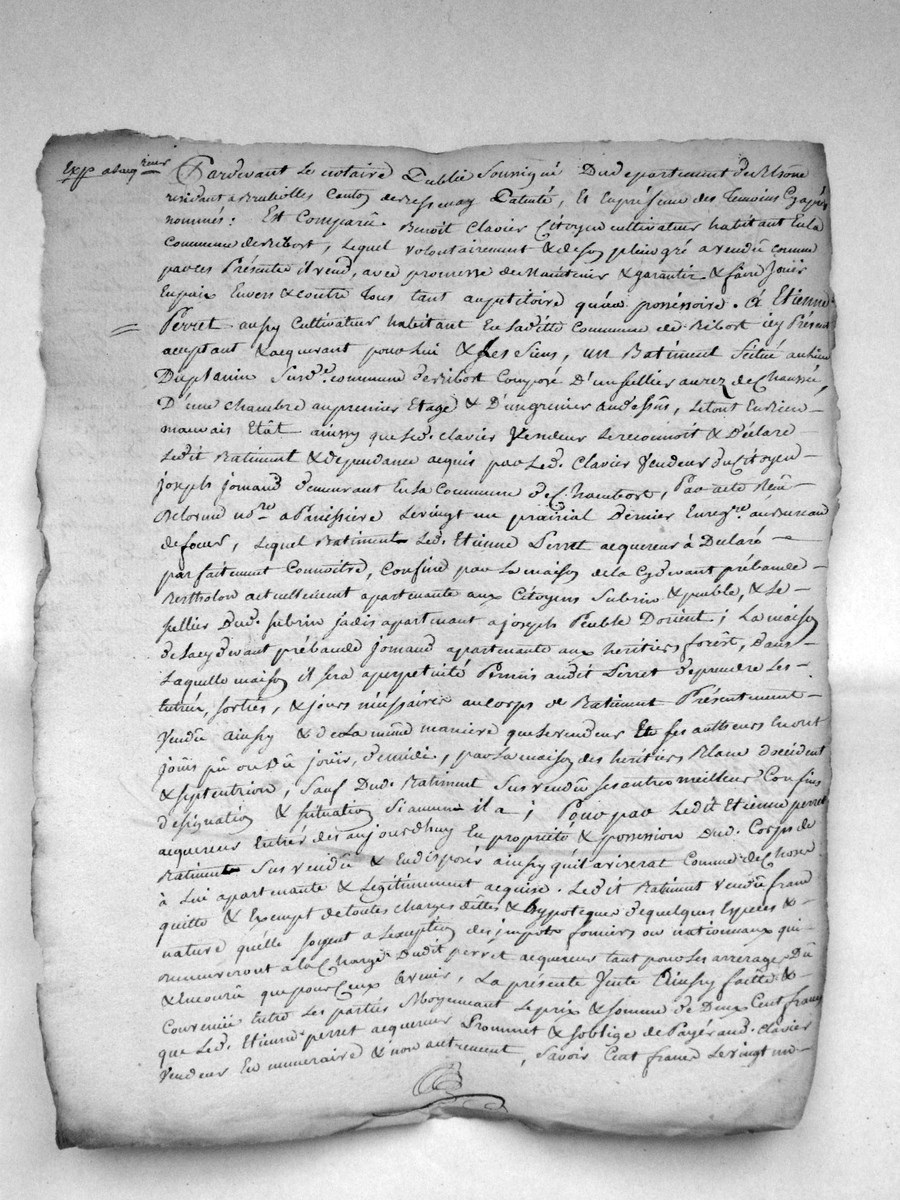 Exp a l'acquereur
Pardevant Le notaire Public Soussigné Dud epartement du Rhône
residant a Brullioles Canton de Bessenay Patenté, & En présence des Temoins Cyaprès
nommés: Est Comparû Benoît Clavier Citoyen cultivateur habitant En la
Commune de Ribost, Lequel volontairement & de son plein gré a vendû comme
par ces Présente il vend, avec promesse de maintenir & garantir & faire Jouir
En paix Envers & contre Tous tant au petitoire qu'au possessoire. à Etienne
Perret aussy Cultivateur habitant En La ditte Commune de Ribost icy Présent
acceptant & acquerant pour Lui & Les Siens, un Batiment Scitué au lieu
Du planin Susd.e commune de Ribost Composé D'un sellier au rez de Chaussé,
D'une chambre au premier Etage & D'un grenier au dessûs, Le tout En bien
mauvais Etât ainssy que Led. clavier Vendeur Le reconnoit & Déclare
Ledit Batiment & dependance acquis par Led. Clavier Vendeur Du Citoyen
joseph jomand demeurant En La Commune de Chambost, Par acte Reçu
Delorme no.re a Panissiere Le vingt un prairial Dernier Enreg.ré au Bureau
de feurs, Lequel Batiment Led. Etienne Perret acquereur à Declaré
parfaitement Connoître, Confiné par La maison de la Cydevant prébande
Bertholon actuellement apartenante aux Citoyens Subrin & puble, & Le
sellier Dud. subrin jadis apartenant a joseph Peuble Dorient; La maison
de La cydevant prébande Jomand apartenante aux heritiers forêst, Dans
Laquelle maison il sera a perpetuité Permis audit Perret de prendre Les
Entrées, sorties, & jours nécessaires au Corps de Batiment Présentement
Vendû ainssy & de La même maniere que le vendeur Et ses autheurs En ont
joüis pû ou dû joüir, de midi, par La maison des heritiers Blanc d'occident
& septentrion, Sauf Dud. Batiment Sus vendû ses autres meilleurs Confins
désignation & situation Si aucune il a; Pour par Ledit Etienne perret
acquereur Entrer dès aujourdhuy En propriété & possession Dud. Corps de
Batiment Sus vendû & En disposer ainssy qu'il aviserat Comme de Chose
à Lui apartenante & Legitimement acquise. Ledit Batiment vendû franc
quitte & Exempt de toutes charges dettes & hypoteques de quelques Especes &
nature qu'elle soyent a L'exeption des impots fonciers ou nationnaux qui
demeureront a la Charge Dudit perret acquereur tant pour Les arrerages Dû
& Encourû que pour Ceux à venir, La présente Vente Ainssy faitte &
Convenüe Entre Les parties Moyennant Le prix & somme de Deux Cent francs
que Led. Etienne perret acquereur Prommet & soblige de Payér aud. Clavier
Vendeur En numeraire & non autrement, Savoir Cent francs Le vingt